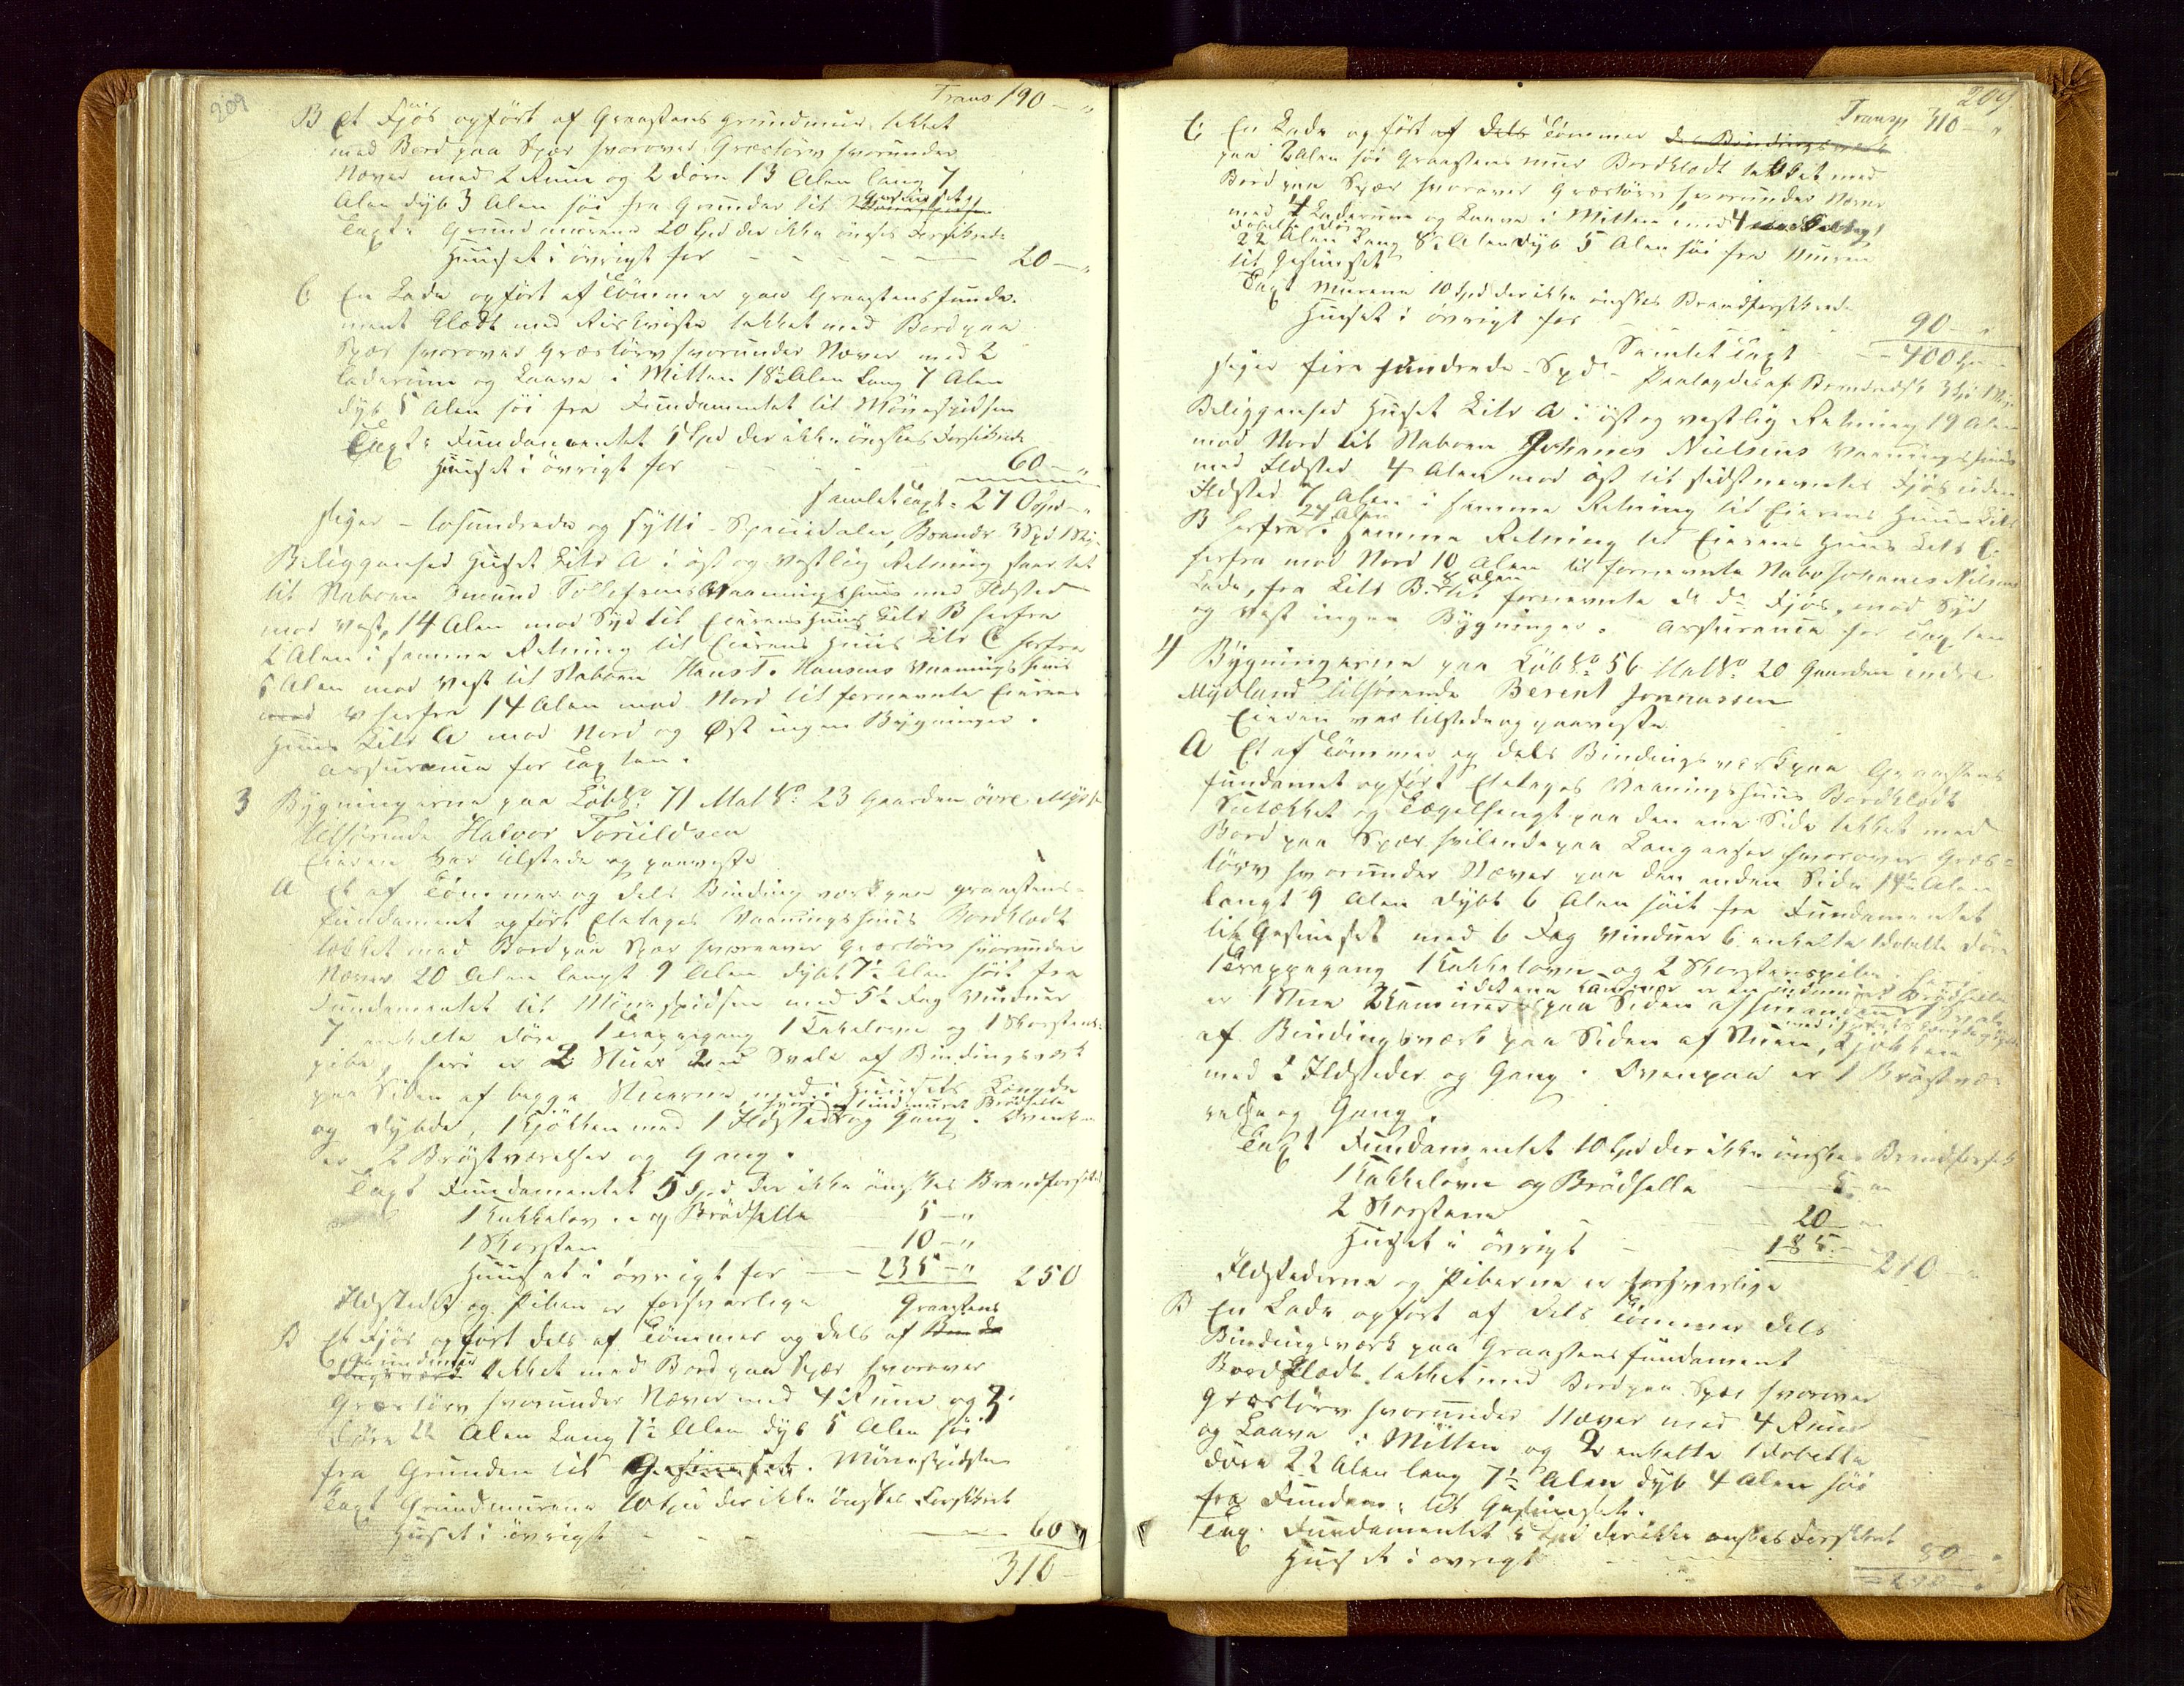 209
Trans 190 – "
B Et Fjös opfört af Graastens Grundmuur tækket
med Bord paa Spær hvorover Græstörv hvorunder
Næver med 2 Rum og 2 döre 13 Alen lang 7
Alen dyb 3 Alen höi fra Grunden til Gesimset
Taxt: Grundmurene 20 Spd der ikke önskes Forsikrede
Huuset i övrigt for – – – – – 20 – "
C En Lade opfört af Tömmer paa Graastensfunda-
ment klædt med tækket med Bord paa
Spær hvorover Græstörv hvorunder Næver med 2
Laderum og Laave i Mitten 18½ Alen lang 7 Alen
dyb 5 Alen höi fra Fundamentet til Mönespidsen
Taxt: Fundamentet 5 Spd der ikke önskes Forsikrede
Huuset i övrigt for – – – 60 – "
samlet Taxt = 270 Spd – "
siger – tohundrede og sytti – Speciedaler, Brandr 3 Spd 1
Beliggenhed Huset Litr A i öst og vestlig Retning
til Naboen Omund Tollefsens Vaaningshuus med Ildsted
mod Vest, 14 Alen mod Syd til Eierens Huus Litr B herfra
2 Alen i samme Retning til Eierens Huus Litr C herfra
5 Alen mod Vest til Naboen Hans T. Hansens Vaaningshuus
herfra 14 Alen mod Nord til fornævnte Eierens
Huus Litr A mod Nord og Øst ingen Bygninger.
Assurance for Taxten.
3 Bygningerne paa Löb No 71 Mat No 23 Gaarden övre
tilhörende Halvor Torieldsen
Eieren var tilstede og paaviste
A Et af Tömmer og dels Bindingsværk paa Graastens-
fundament opfört Etetages Vaaningshuus Bordklædt
tækket med Bord paa Spær hvorover Græstörv hvorunder
Næver 20 Alen langt 9 Alen dybt 7½ Alen höit fra
Fundamentet til Mönespidsen med 5½ Fag Vinduer
7 enkelte Döre 1 Trappegang 1 Kakelovn og 1 Skorstens-
pibe, heri er 2 Stuer Svale af Bindingsværk
paa Siden af begge Stuerne med i Huusets Længde
og Dybde, 1 Kjökken med 1 Ildsted hvori er indmuret Brödhelle og Gang. Ovenpaa
er 2 Bröstværelser og Gang.
Taxt Fundamentet 5 Spd der ikke önskes Brandforsikret
1 Kakkelovn og Brödhelle 5 – "
1 Skorsten – 10 – "
Huuset i övrigt for – 235 – " 250
Ildstedet og Piben er forsvarlige
B Et Fjös opfört dels af Tömmer og dels af Graastens
Grundmuur tækket med Bord paa Spær hvorover
Græstörv hvorunder Næver med 4 Rum og 3
Döre 22 Alen lang 7½ Alen dyb 5 Alen höi
fra Grunden til Gesimset. Mönespidsen
Taxt Grundmurene 10 Spd der ikke önskes Forsikret
Huset i övrigt – – – 60 "
310 –
209
Transp 310 – "
C En Lade opfört af dels Tömmer dels Bindingsværk
paa 2 Alen höi Graastens muur Bordklædt tækket med
Bord paa Spær hvorover Græstörv hvorunder Næver
med 4 Laderum og Laave i Mitten med 4
dobelte döre
22 Alen lang 8½ Alen dyb 5 Alen höi fra Muren
til Gesimset
Taxt Murene 10 Spd der ikke önskes Brandforsikrede
Huuset i övrigt for 90 – "
Samlet Taxt – 400 Spd
siger fire hundrede – Spd – Paalagdes af Brandredsk 3
Beliggenhed Huset Litr A i öst og vestlig Retning 19 Alen
mod Nord til Naboen Johanes Nielsens Vaaningshuus
med Ildsted 4 Alen mod öst til sidstnævntes Fjös uden
Ildsted 7 Alen i samme Retning til Eierens Huus Litr
B herfra 24 Alen i samme Retning til Eierens Huus Litr C
herfra mod Nord 10 Alen til fornævnte Nabo Johanes Nilsens
Lade, fra Litr B 8 Alen til fornævnte Fjös, mod Syd
og Vest ingen Bygninger. Assurance for Taxten
4 Bygningerne paa Löb No 56 Mat No 20 Gaarden indre
Mydland tilhörende Berent Jonnassen
Eieren var tilstede og paaviste
A Et af Tömmer og dels Bindingsværk paa Graastens
fundament opfört Etetages Vaaningshuus Bordklædt
Sutækket og Tægelhængt paa den ene Side tækket med
Bord paa Spær hvilende paa Langaaser hvorover Græs-
törv hvorunder Næver paa den anden Side 14½ Alen
langt 9 Alen dybt 6 Alen höit fra Fundamentet
til Gesimset med 6 Fag Vinduer 6 enkelte 1 dobelte Döre
1 Trappegang 1 Kakkelovn og 2 Skorstenspiber. heri
er 1 Stue 2 Kammere i det ene Kammer er en indmuret Brödhelle paa Siden af hinanden 1 Svale
af Bindingsværk paa Siden af Stuen, Kjökken
med 2 Ildsteder og Gang. Ovenpaa er 1 Bröstvæ-
relse og Gang.
Taxt Fundamentet 10 Spd der ikke önskes Brandforsik
1 Kakkelovn og Brödhelle – 5 –
2 Skorstene – 20 –
Huset i övrigt – 185 – 210 – "
Ildstederne og Piberne er forsvarlige
B En Lade opfört af dels Tömmer dels
Bindingsværk paa Graastensfundament
Bordklædt tækket med Bord paa Spær hvorover
Græstörv hvorunder Næver med 4 Rum
og Laave i Mitten og 2 enkelte 1 dobelte
Döre 22 Alen lang 7½ Alen dyb 4 Alen höi
fra Fundam: til Gesimset.
Taxt. Fundamentet 5 Spd der ikke önskes Forsikret
Huset i övrigt – 80 – "